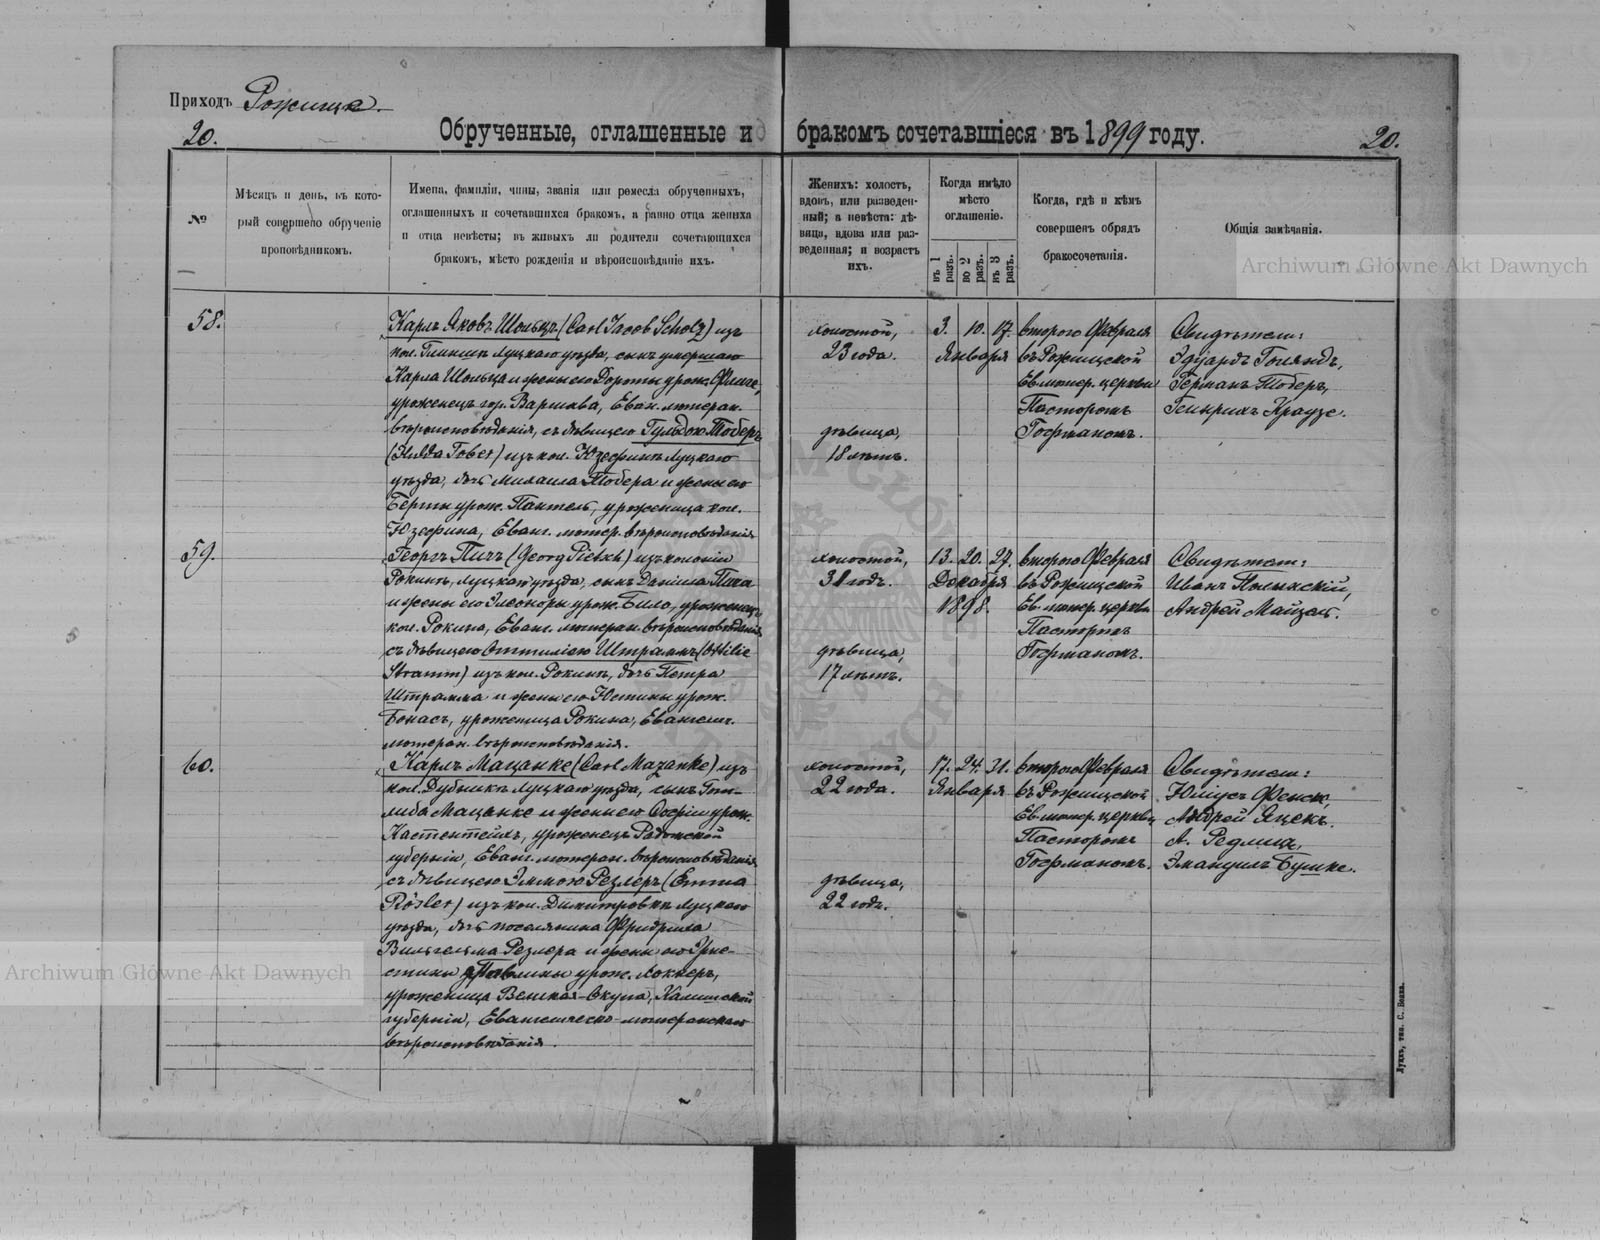 Приходъ Рожище.
20.
Обрученные, оглашенные и бракомъ сочетавшіеся въ 1899 году.
20.
№
Мѣсяцъ и день, въ кото-
рый совершено обрученіе
проповѣдникомъ.
Имена, фамиліи, чины, званія или ремесла обрученныхъ,
оглашенныхъ и сочетавшихся бракомъ, а равно отца жениха
и отца невѣсты; въ живыхъ ли родители сочетающихся
бракомъ, мѣсто рожденія и вѣроисповѣданіе ихъ.
Женихъ: холостъ,
вдовъ, или разведен-
ный; а невѣста: дѣ-
вица, вдова или раз-
веденная; и возрастъ
ихъ.
Когда имѣло
мѣсто
оглашеніе.
въ 1 разъ.
во 2 разъ.
въ 3 разъ.
Когда, гдѣ и кѣмъ
совершенъ обрядъ
бракосочетанія.
Общія замѣчанія.
Archiwum Główne Akt Dawnych
58.
Карлъ Яковъ Шольцъ (Carl Jacob Scholz) изъ
кол. Глинищъ Луцкаго уѣзда, сынъ умершаго
Карла Шольца и жены его Дороты урож.
уроженецъ гор. Варшава, Еван. лютеран.
вѣроисповѣданія, съ дѣвицею Гульдою Тоберъ
(Hulda Tober) изъ кол. Юзефинъ Луцкаго
уѣзда, дочь Михаила Тобера и жены его
Берты урож. Пантель, уроженица кол.
Юзефина, Еванг. лютер. вѣроисповѣданія
холостой,
23 года.
дѣвица,
18 лѣтъ.
3. 10. 17.
Января
второго Февраля
въ Рожищской
Ев. лютер. церкви
Пасторомъ
Гофманомъ.
Свидѣтели:
Эдуардъ Голяндъ,
Германъ Тоберъ,
Генрихъ Краузе.
59.
Георгъ Пичъ (Georg Pietsch) изъ колоніи
Рокинъ, Луцкаго уѣзда, сынъ Даніила Пича
и жены его Элеоноры урож. Било, уроженецъ
кол. Рокина, Еванг. лютеран. вѣроисповѣданія
съ дѣвицею Оттиліею Штраммъ (Ottilie
Stramm) изъ кол. Рокинъ, дочь Петра
Штрамма и жены его Юстины урож.
Бонасъ, уроженица Рокина, Евангел.
лютеран. вѣроисповѣданія.
холостой,
31 годъ.
дѣвица,
17 лѣтъ.
13. 20. 27.
Декабря
1898.
второго Февраля
въ Рожищской
Ев. лютер. церкви
Пасторомъ
Гофманомъ.
Свидѣтели:
Иванъ
Андрей Майзас.
60.
Карлъ Мацанке (Carl Mazanke) изъ
кол. Дубищъ Луцкаго уѣзда, сынъ Гот-
либа Мацанке и жены его Софіи урож.
уроженецъ Радомской
губерніи, Еванг. лютеран. вѣроисповѣданія
съ дѣвицею Эммою Резлеръ (Emma
Rösler) изъ кол. Димитровки Луцкаго
уѣзда, дочь поселянина Фридриха
Вильгельма Резлера и жены его Эрне-
стины Павлины урож. Локнеръ,
уроженица Калишской
губерніи, Евангелическо-лютеранскаго
вѣроисповѣданія.
холостой,
22 года.
дѣвица,
22 годъ.
17. 24. 31.
Января
второго Февраля
въ Рожищской
Ев. лютер. церкви
Пасторомъ
Гофманомъ.
Свидѣтели:
Юліусъ Фенскъ,
Андрей Яцекъ.
А. Редлих,
Эмануилъ Бушке.
Archiwum Główne Akt Dawnych
Луцкъ, тип. С. Бенка.